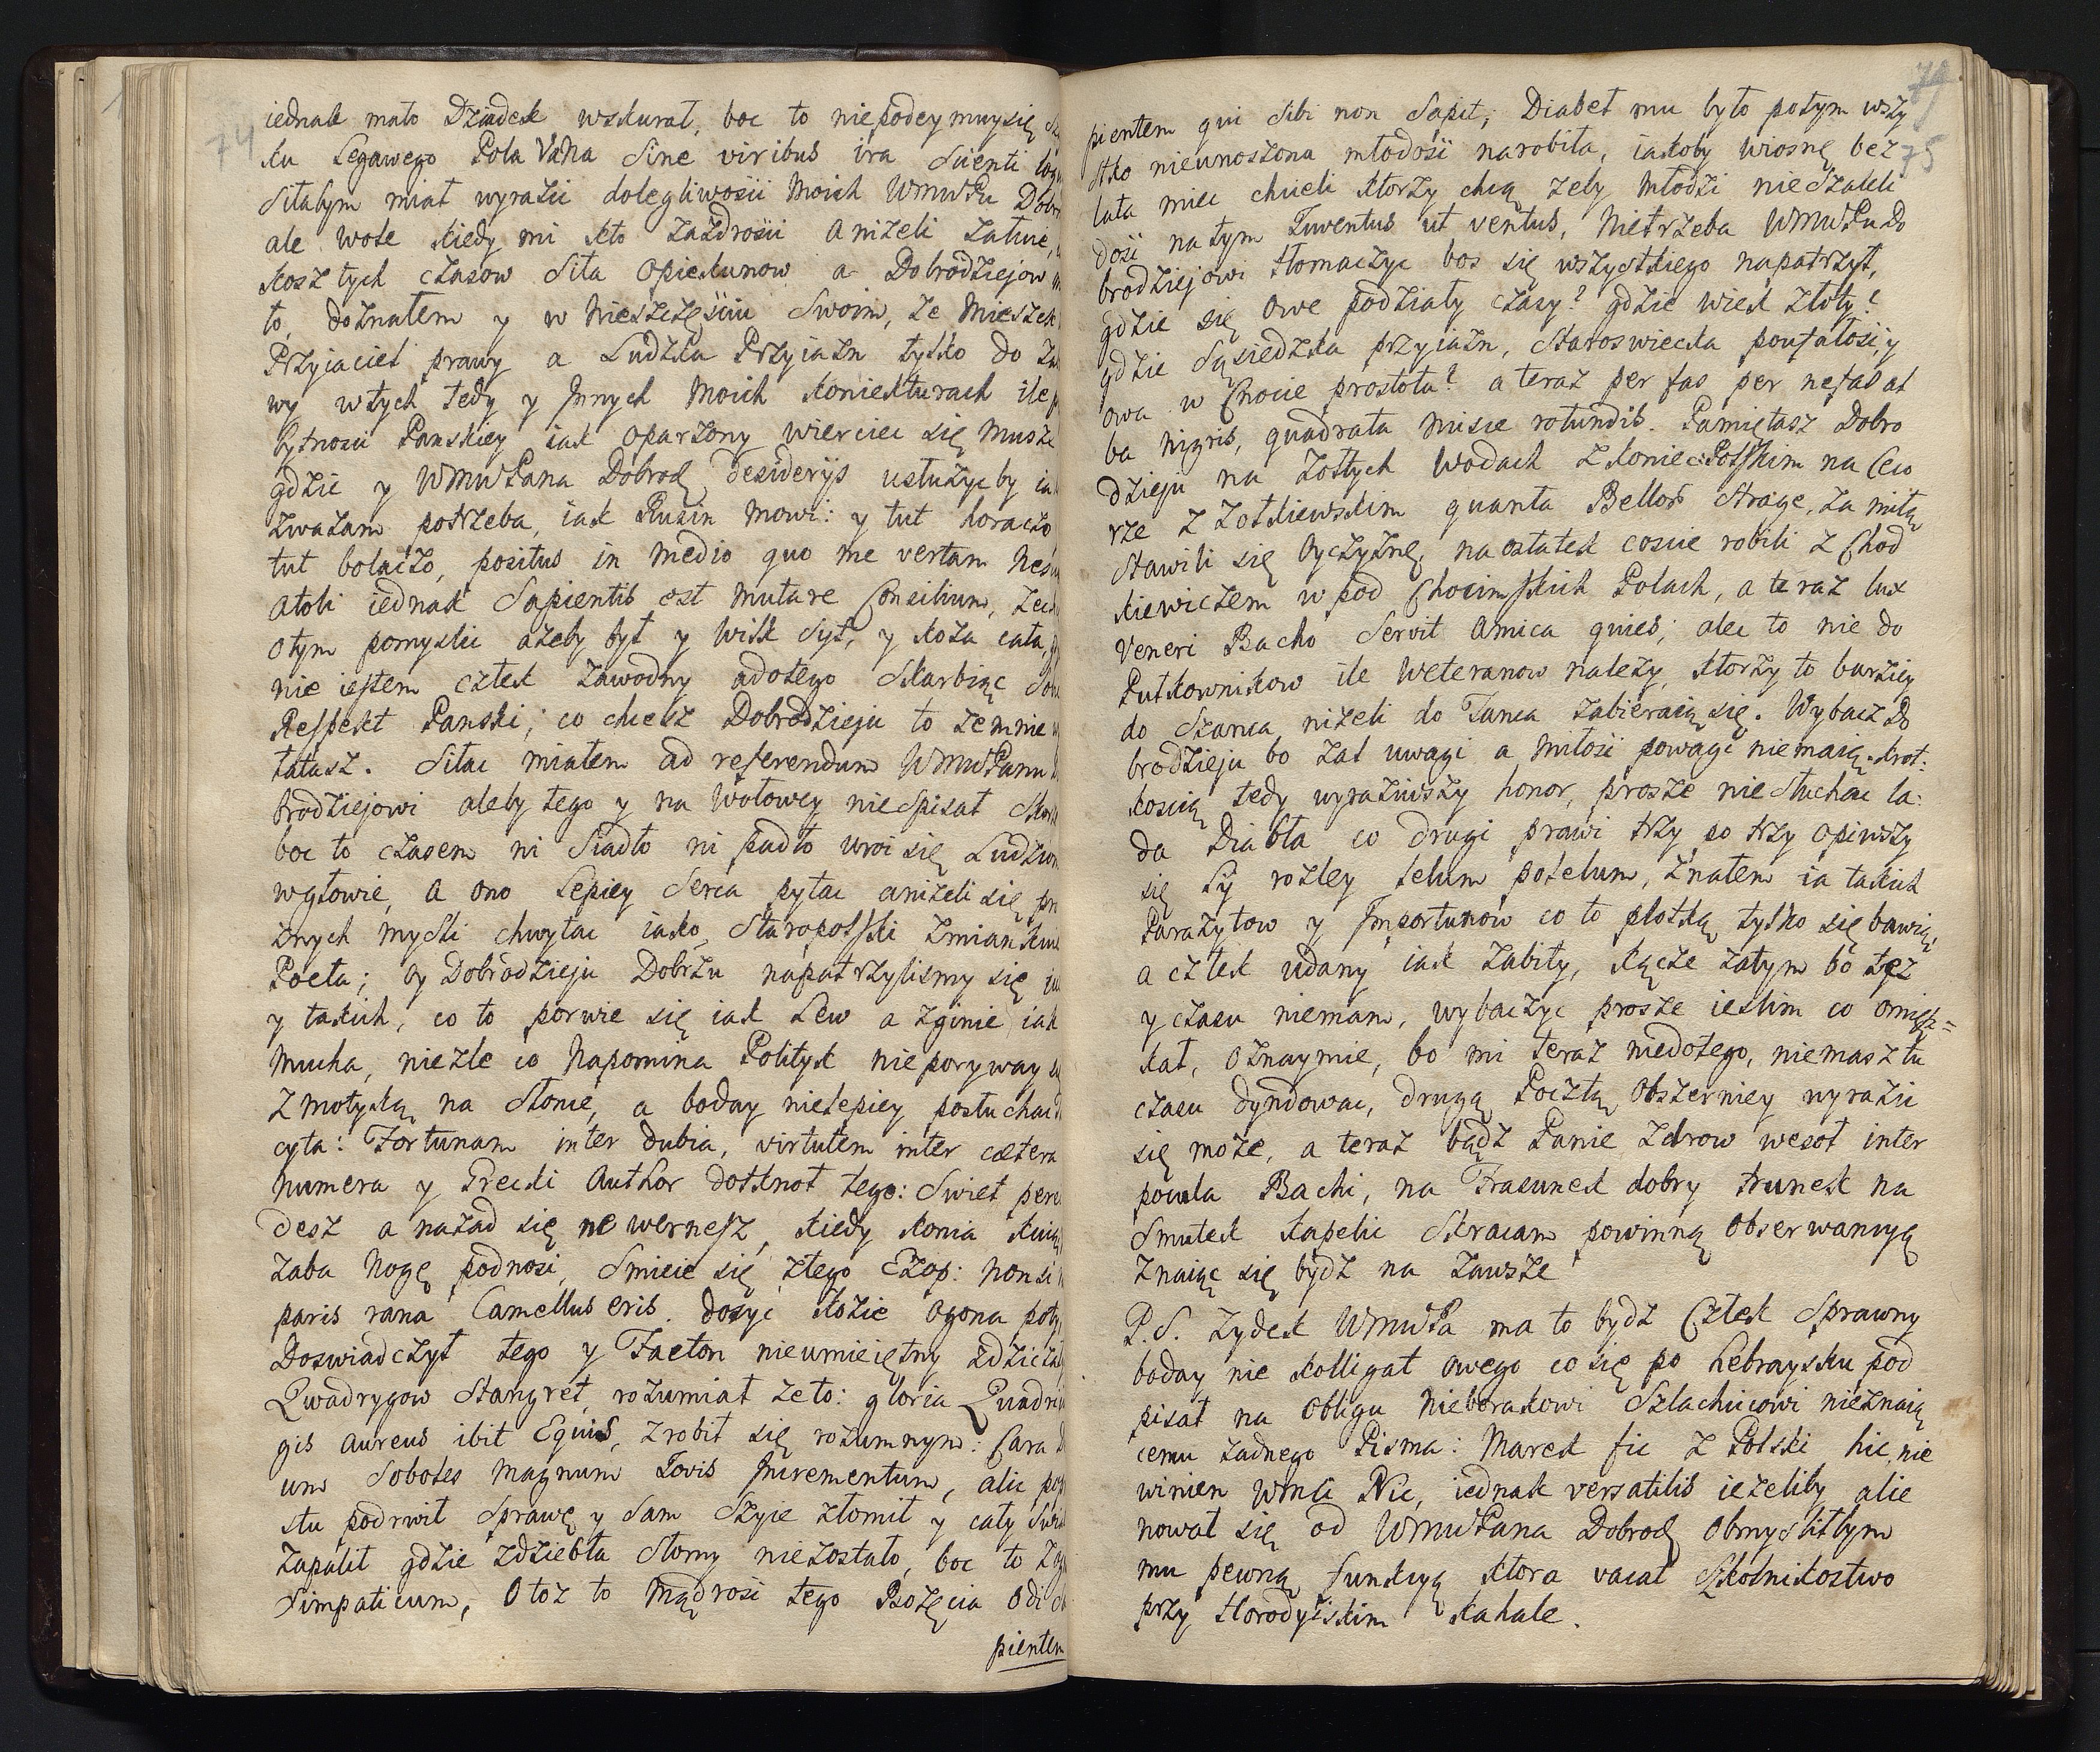 74
iednak mało Dziadek wskurał, boc to niepodeymuysię
ku Legawego Pola Vana Sine viribus ira Scienti
Siłabym miał wyrazic dolegliwosci Moich WmwPu
ale wole kiedy mi kto Zazdrosci aniżeli Załuie,
kosz tych czasow Siła Opiekunow a Dobrodziejow
to, doznałem y w Nieszczęsciu Swoim, że Mieszek
Przyiaciel prawy a Ludzka Przyiazn tylko do
wy wtych tedy y Jnnych Moich koniekturach ile
bytnosci Panskiey iak Oparzony wiercieć się Muszę
gdzie y WmwPana Dobrod. desiderijs usłużyc by
Zwazam potrzeba, iak Rusin Mowi: y tut horaczo
tut bolaczo, positus in Medio quo me vertam
atoli iednak Sapientis est Mutare Consilium,
Otym pomyslic ażeby był y Wilk Syt, y koza cała,
nie iestem człek Zawodny adotego Skarbiąc
Respekt Panski; co chcesz Dobrodzieju to zemnie
tałasz. Siłac miałem ad referendum WmwPanu
brodziejowi aleby tego y na Wołowey niespisał
boc to czasem ni Siadło ni padło uroi się Ludziom
wgłowie, a ono Lepiey Serca pytac aniżeli się
znych mysli chwytac iako Staropolski
Poeta; Oy Dobrodzieju Dobrzu napatrzylismy się
y takich, co to porwie się iak Lew a zginie iak
Mucha, niezle co Napomina Polityk nieporyway
Z motyką na Słonce, a boday nielepiey posłuchac
cyta: Fortunam inter dubia, virtutem inter cætera
Numera y Grecki Author dotknoł tego: Swiet
desz a nazad się ne wernesz, kiedy konia
Zaba Nogę podnosi, Smieie się ztego Ezop: Non
paris rana Camellus eris. dosyc kozie Ogona
Doswiadczył tego y Faeton nieumieiętny
Qwadrygow Stangret, rozumiał żeto: gloria
gis aureus ibit Equis, zrobił się rozumnym: Cara
um Soboles Magnum Jovis Jncrementum, alic
stu podrwił Sprawę y Sam Szyie złomił y cały
Zapalił gdzie zdziebła Słomy niezostało, boc to
Simpaticum, Otoz to Mądrosc tego Bożęcia Odi
pientem
75
pientem qui Sibi non Sapit; Diabeł mu było potym wszy
stko nieunoszona młodosc narobiła, iakoby Wiosnę bez
lata miec chcieli ktorzy chcą zeby Młodzi nieszaleli
dosc natym Juventus ut ventus, Nietrzeba WmwPu do
brodziejowi tłomaczyc bos się wszystkiego napatrzył,
gdzie się Owe podziały czasy? gdzie wiek złoty?
gdzie Sąsiedzka przyiazn, Staroswiecka poufałosc, y
owa w Cnocie prostota? a teraz per fas per nefas al
ba Nigris, quadrata Misce rotundis. Pamiętasz Dobro
dzieju na Zołtych Wodach z koniecPolskim na Ceco
rze z Zołkiewskim quanta Bellor Strage, za miłą
Stawili się Oyczyznę, naostatek coscie robili z Chod
kiewiczem w pod Chocimskich Polach, a teraz lux
Veneri Bacho Servit Amica quies; alec to nie do
Pułkownikow ile Weteranow należy, ktorzy to barziey
do Szanca niżeli do Tanca zabieraią się. Wybacz Do
brodzieju bo zal uwagi a Miłosc powagi niemaią. krot:
koscią tedy wyraziwszy honor, proszę nie Słuchac la:
da Diabła co drugi prawi trzy po trzy Opiwszy
się Sÿ rozley telum potelum, znałem ia takich
Parazytow y Jmportunow co to plotką tylko się bawią,
a człek udany iak zabity, kączę zatym bo też
y czasu niemam, wybaczyc proszę ieslim co omiesz=
kał, Oznaymię, bo mi teraz niedotego, niemasz tu
czasu dyndowac, drugą Pocztą Obszerniey wyrazic
się może, a teraz bądz Panie Zdrow wesoł inter
pocula Bachi, na Frasunek dobry trunek na
Smutek kapelic Skracam powinną Obserwancyą
znaiąc się bydz na Zawsze
P.S. Zydek WmwPa ma to bydz Człek Sprawny
boday nie kolligat owego co się po hebraysku pod
pisał na Obligu Nieborakowi Szlachcicowi nieznaią
cemu żadnego Pisma: Marek fic z Polski hic, nie
winien Wmsc Nic, iednak versatilis ieżeliby alie
nował się od WmwPana Dobrod. Obmyslilbym
mu pewną funkcyą ktora vacat Szkolnikostwo
przy Horodyskim kahale.